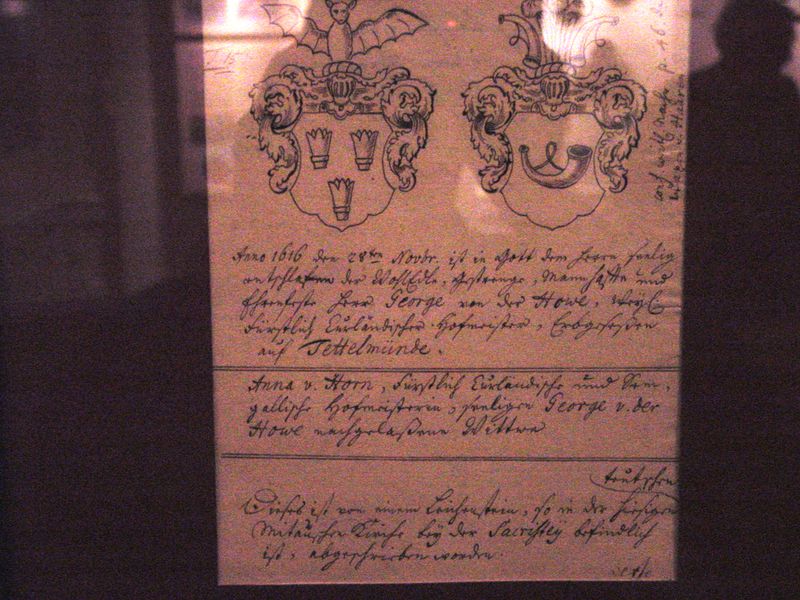 Anno 1616 den 28ten Novbr. ist in Gott dem Herrn seelig
entschlafen der WohlEdle, Gestrenge, Mannhaffte und
Ehrenfeste Herr George von der Howe, Weyl
Fürstlich Curländischer Hofmeister, Erbgeseßen
auf Tettelmünde.
Anna v. Horn, Fürstlich Curländische und Sem-
gallische Hofmeisterin, seeligen George v. der
Howe nachgelaßene Wittwe
teutschen
Dieses ist von einem Leichenstein, so in der hiesigen
Mitauschen Kirche bey der Sacristey befindlich
ist, abgeschrieben worden.